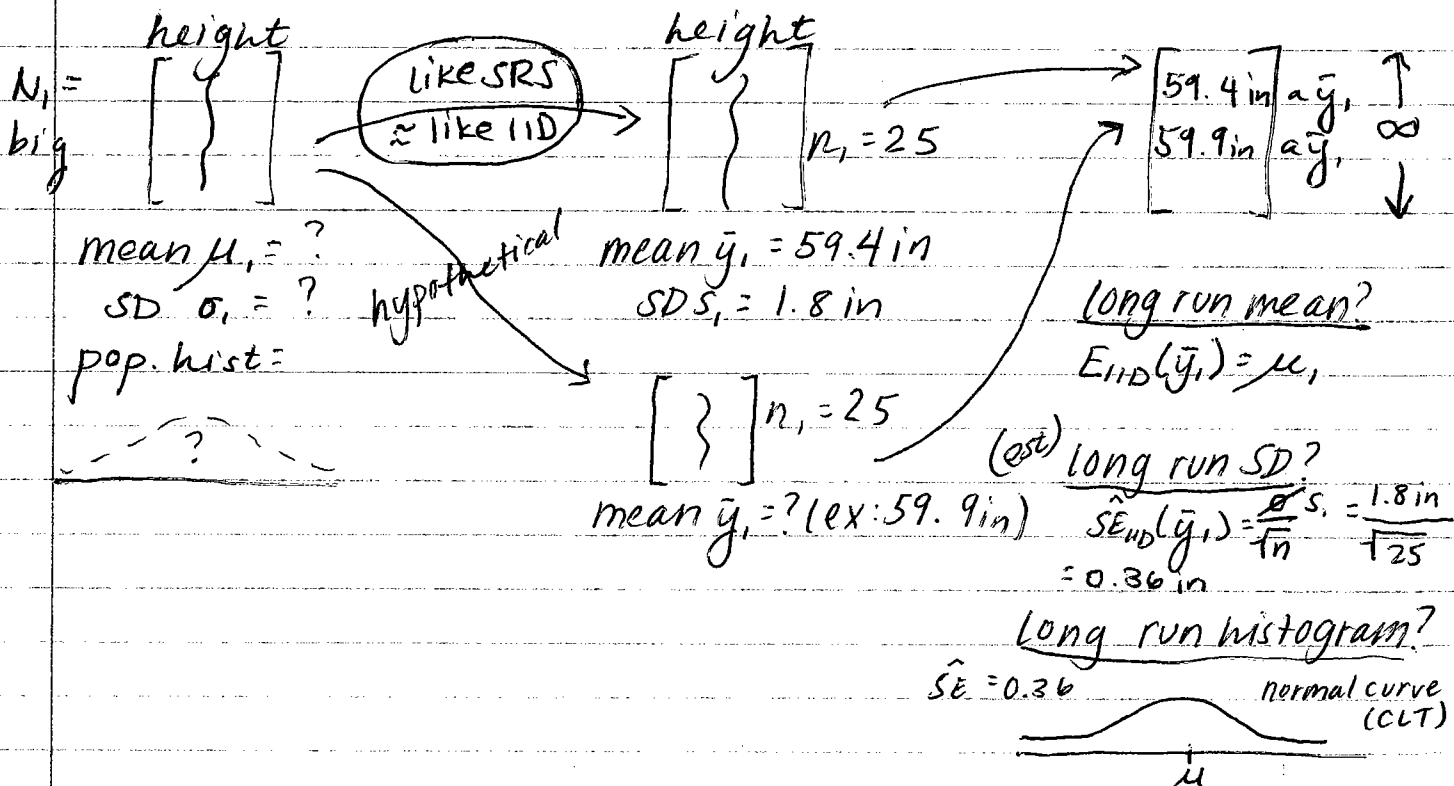 height
N₁ = big
like SRS
≈ like IID
height
n₁ = 25
59.4 in a ȳ₁
59.9 in a ȳ₁
∞
mean μ₁ = ?
SD σ₁ = ?
pop. hist =
?
hypothetical
mean ȳ₁ = 59.4 in
SD s₁ = 1.8 in
n₁ = 25
mean ȳ₁ = ? (ex: 59.9in)
long run mean?
E_IID(ȳ₁) = μ₁
(est) long run SD?
ŜE_IID(ȳ₁) = σ s₁/√n = 1.8 in/√25
= 0.36 in
long run histogram?
ŜE = 0.36
normal curve
(CLT)
μ